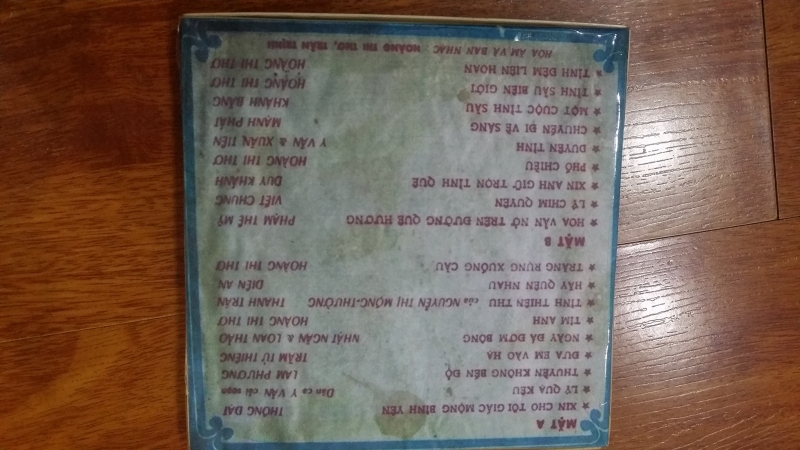 MẶT A
★ XIN CHO TÔI GIẤC MỘNG BÌNH YÊN THÔNG ĐẠT
★ LÝ QUẠ KÊU Dân ca Y VÂN cải soạn
★ THUYỀN KHÔNG BẾN ĐỖ LAM PHƯƠNG
★ ĐƯA EM VÀO HẠ TRẦM TỬ THIÊNG
★ NGÀY ĐÁ ĐƠM BÔNG NHẬT NGÂN & LOAN THẢO
★ TÌM ANH HOÀNG THI THƠ
★ TÌNH THIÊN THU của NGUYỄN THỊ MỘNG-THƯỜNG THANH TRÂN
★ HÃY QUÊN NHAU DIÊN AN
★ TRĂNG RỤNG XUỐNG CẦU HOÀNG THI THƠ
MẶT B
★ HOA VẪN NỞ TRÊN ĐƯỜNG QUÊ HƯƠNG PHẠM THẾ MỸ
★ LÝ CHIM QUYÊN VIẾT CHUNG
★ XIN ANH GIỮ TRỌN TÌNH QUÊ DUY KHÁNH
★ PHỐ CHIỀU HOÀNG THI THƠ
★ DUYÊN TÌNH Y VÂN & XUÂN TIÊN
★ CHUYẾN ĐI VỀ SÁNG MẠNH PHÁT
★ MỘT CUỘC TÌNH SẦU KHÁNH BĂNG
★ TÌNH SẦU BIÊN GIỚI HOÀNG THI THƠ
★ TÌNH ĐÊM LIÊN HOAN HOÀNG THI THƠ
HÒA ÂM VÀ BAN NHẠC : HOÀNG THI THƠ, TRẦN TRỊNH